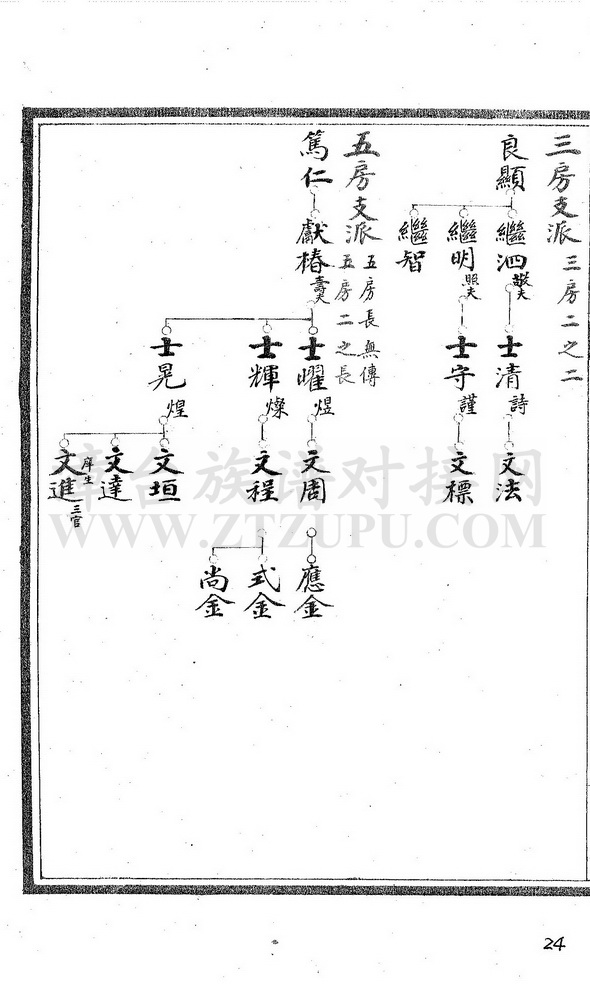 三房支派 三房二之二
良顯
繼泗 敬夫
士清 詩
文法
繼明 照夫
士守 謹
文標
繼智
五房支派 五房長無傳
五房二之長
篤仁
獻椿 壽夫
士曜 煜
文周
應金
士輝 燦
文程
式金
尚金
士晃 煌
文垣
文達
庠生
文進 三官
庫合族谱对接网
WWW.ZTZUPU.COM
24